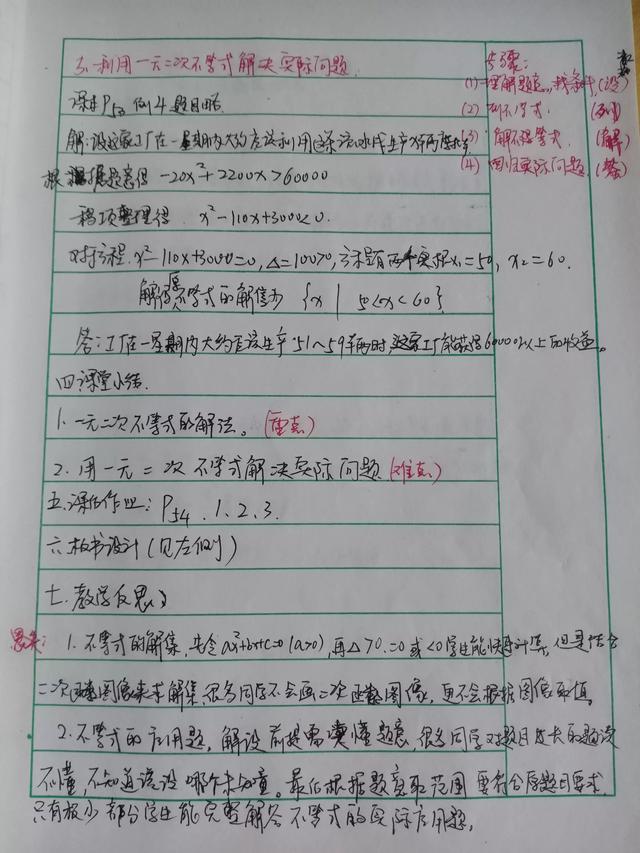 3. 利用一元二次不等式解决实际问题
步骤:
(1) 理解题意,找条件(设)
(2) 列不等式. (列)
(3) 解不等式. (解)
(4) 回归实际问题 (答)
课本P53 例4 题目略.
解:设这家工厂在一星期内大约应该利用这条流水线生产x辆摩托车
根据题意得 -20x²+2200x>60000
移项整理得 x²-110x+3000<0.
对于方程 x²-110x+3000=0, △=100>0, 方程有两个实根x₁=50, x₂=60.
解得原不等式的解集为 {x | 50<x<60}
答:工厂在一星期内大约应该生产51~59辆时,这家工厂能获得60000以上的收益。
四.课堂小结.
1.一元二次不等式的解法。(重点)
2.用一元二次不等式解决实际问题(难点)
五.课后作业: P54 . 1、2、3.
六.板书设计(见左侧)
七.教学反思:
思失: 1. 不等式的解集,先令ax²+bx+c=0 (a>0),再△>0.=0或<0学生能快速计算,但是结合
二次函数图像来求解集,很多同学不会画二次函数图像,更不会根据图像取值.
2.不等式的应用题,解设前提需读懂题意,很多同学对题目过长的题读
不懂,不知道该设哪个未知量。最后根据题意取范围要符合原题目要求.
只有极少部分学生能完整解答不等式的实际应用题.